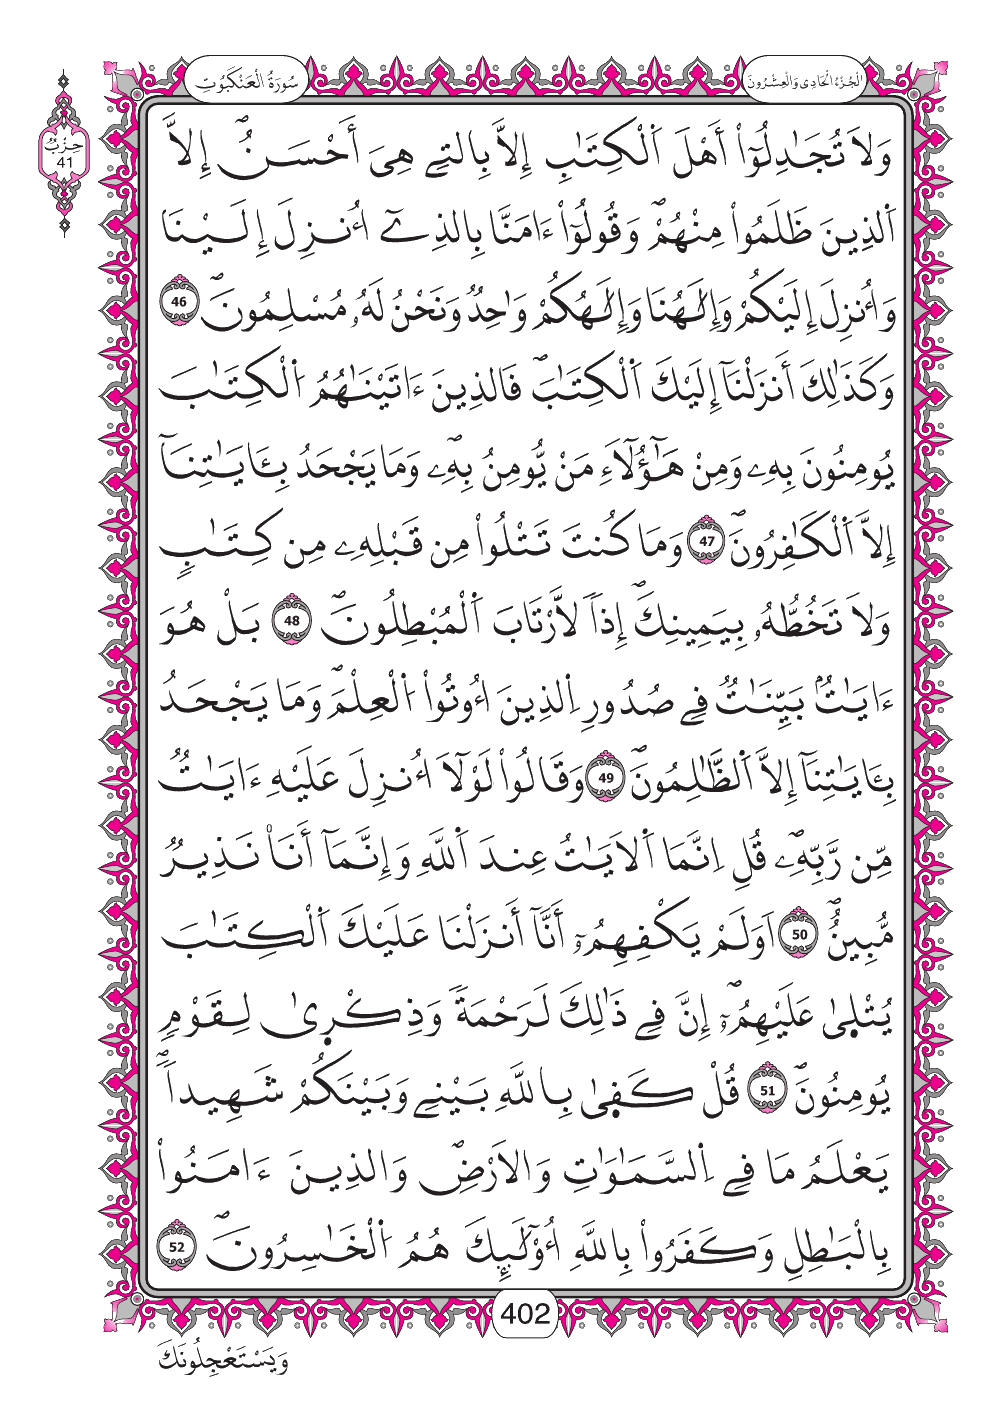 الجُزْءُ الْحَادِي وَالْعِشْرُونَ
سُورَةُ الْعَنْكَبُوتِ
حِزْبٌ
41
وَلَا تُجَٰدِلُوٓا۟ أَهْلَ اَ۬لْكِتَٰبِ إِلَّا بِالتِے هِيَ أَحْسَنُۖ إِلَّا
اَ۬لذِينَ ظَلَمُوا۟ مِنْهُمْۖ وَقُولُوٓا۟ ءَامَنَّا بِالذِےٓ أُنزِلَ إِلَيْنَا
وَأُنزِلَ إِلَيْكُمْ وَإِلَٰهُنَا وَإِلَٰهُكُمْ وَٰحِدٌ وَنَحْنُ لَهُۥ مُسْلِمُونَۖ 46
وَكَذَٰلِكَ أَنزَلْنَآ إِلَيْكَ اَ۬لْكِتَٰبَۖ فَالذِينَ ءَاتَيْنَٰهُمُ اُ۬لْكِتَٰبَ
يُومِنُونَ بِهِۦ وَمِنْ هَٰٓؤُلَآءِ مَنْ يُّومِنُ بِهِۦۖ وَمَا يَجْحَدُ بِـَٔايَٰتِنَآ
إِلَّا اَ۬لْكَٰفِرُونَۖ 47 وَمَا كُنتَ تَتْلُوا۟ مِن قَبْلِهِۦ مِن كِتَٰبٍ
وَلَا تَخُطُّهُۥ بِيَمِينِكَۖ إِذاٗ لَّارْتَابَ اَ۬لْمُبْطِلُونَۖ 48 بَلْ هُوَ
ءَايَٰتُۢ بَيِّنَٰتٌ فِے صُدُورِ اِ۬لذِينَ أُوتُوا۟ اُ۬لْعِلْمَۖ وَمَا يَجْحَدُ
بِـَٔايَٰتِنَآ إِلَّا اَ۬لظَّٰلِمُونَۖ 49 وَقَالُوا۟ لَوْلَآ أُنزِلَ عَلَيْهِ ءَايَٰتٌ
مِّن رَّبِّهِۦۖ قُلِ اِنَّمَا اَ۬لَايَٰتُ عِندَ اَ۬للَّهِ وَإِنَّمَآ أَنَا۠ نَذِيرٌ
مُّبِينٌۖ 50 اَوَلَمْ يَكْفِهِمُۥٓ أَنَّآ أَنزَلْنَا عَلَيْكَ اَ۬لْكِتَٰبَ
يُتْل۪يٰ عَلَيْهِمُۥٓۖ إِنَّ فِے ذَٰلِكَ لَرَحْمَةٗ وَذِكْر۪يٰ لِقَوْمٖ
يُومِنُونَۖ 51 قُلْ كَف۪يٰ بِاللَّهِ بَيْنِے وَبَيْنَكُمْ شَهِيداٗۖ
يَعْلَمُ مَا فِے اِ۬لسَّمَٰوَٰتِ وَالَارْضِۖ وَالذِينَ ءَامَنُوا۟
بِالْبَٰطِلِ وَكَفَرُوا۟ بِاللَّهِ أُو۟لَٰٓئِكَ هُمُ اُ۬لْخَٰسِرُونَۖ 52
402
وَيَسْتَعْجِلُونَكَ